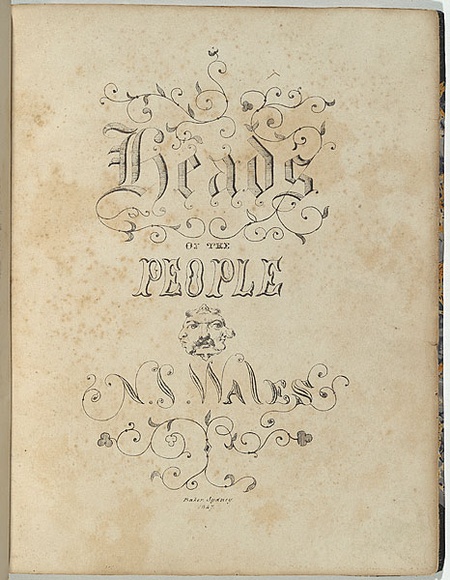 Heads
OF THE
PEOPLE
N.S. Wales
Baker Sydney
1847